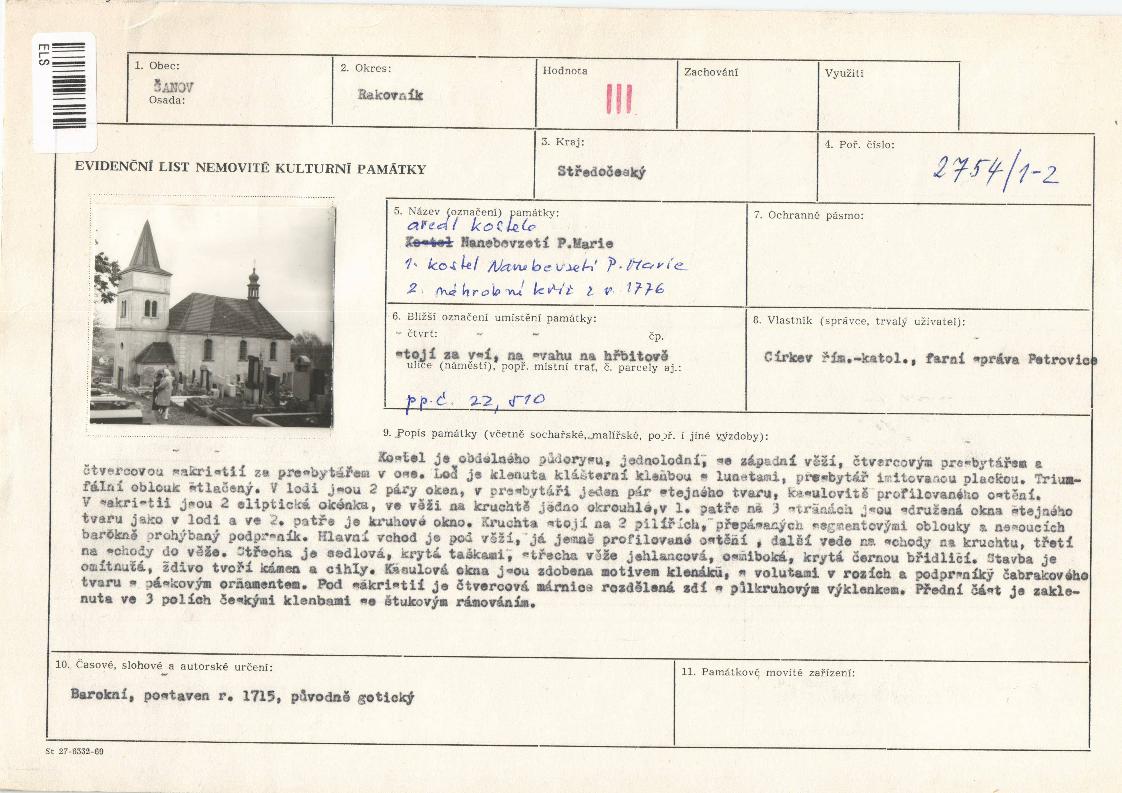 ELS
1. Obec:
ŠANOV
Osada:
2. Okres:
Rakovník
Hodnota
III
Zachování
Využití
EVIDENČNÍ LIST NEMOVITÉ KULTURNÍ PAMÁTKY
3. Kraj:
Středočeský
4. Poř. číslo:
2754/1-2
5. Název (označení) památky:
areál kostela
Kostel Nanebevzetí P.Marie
1. kostel Nanebevzetí P. Marie
2. náhrobní kříž z r. 1776
7. Ochranné pásmo:
6. Bližší označení umístění památky:
čtvrť:
čp.
stojí za vsí, na svahu na hřbitově
ulice (náměstí), popř. místní trať, č. parcely aj.:
pp.č. 22, 510
8. Vlastník (správce, trvalý uživatel):
Církev řím.-katol., farní správa Petrovice
9. Popis památky (včetně sochařské, malířské, popř. i jiné výzdoby):
Kostel je obdélného půdorysu, jednolodní, se západní věží, čtvercovým presbytářem a
čtvercovou sakristií za presbytářem v ose. Loď je klenuta klášterní klenbou s lunetami, presbytář imitovanou plackou. Trium-
fální oblouk stlačený. V lodi jsou 2 páry oken, v presbytáři jeden pár stejného tvaru, kasulovitě profilovaného ostění.
V sakristii jsou 2 eliptická okénka, ve věži na kruchtě jedno okrouhlé,v 1. patře na 3 stranách jsou sdružená okna stejného
tvaru jako v lodi a ve 2. patře je kruhové okno. Kruchta stojí na 2 pilířích, přepásaných segmentovými oblouky a nesoucích
barokně prohýbaný podprsník. Hlavní vchod je pod věží, já jemně profilované ostění , další vede na schody na kruchtu, třetí
na schody do věže. Střecha je sedlová, krytá taškami, střecha věže jehlancová, osmiboká, krytá černou břidlicí. Stavba je
omítnutá, zdivo tvoří kámen a cihly. Kasulová okna jsou zdobena motivem klenáků, s volutami v rozích a podprsníky čabrakového
tvaru s páskovým ornamentem. Pod sakristií je čtvercová márnice rozdělená zdí s půlkruhovým výklenkem. Přední část je zakle-
nuta ve 3 polích českými klenbami se štukovým rámováním.
10. Časové, slohové a autorské určení:
Barokní, postaven r. 1715, původně gotický
11. Památkové movité zařízení:
St 27-6332-69